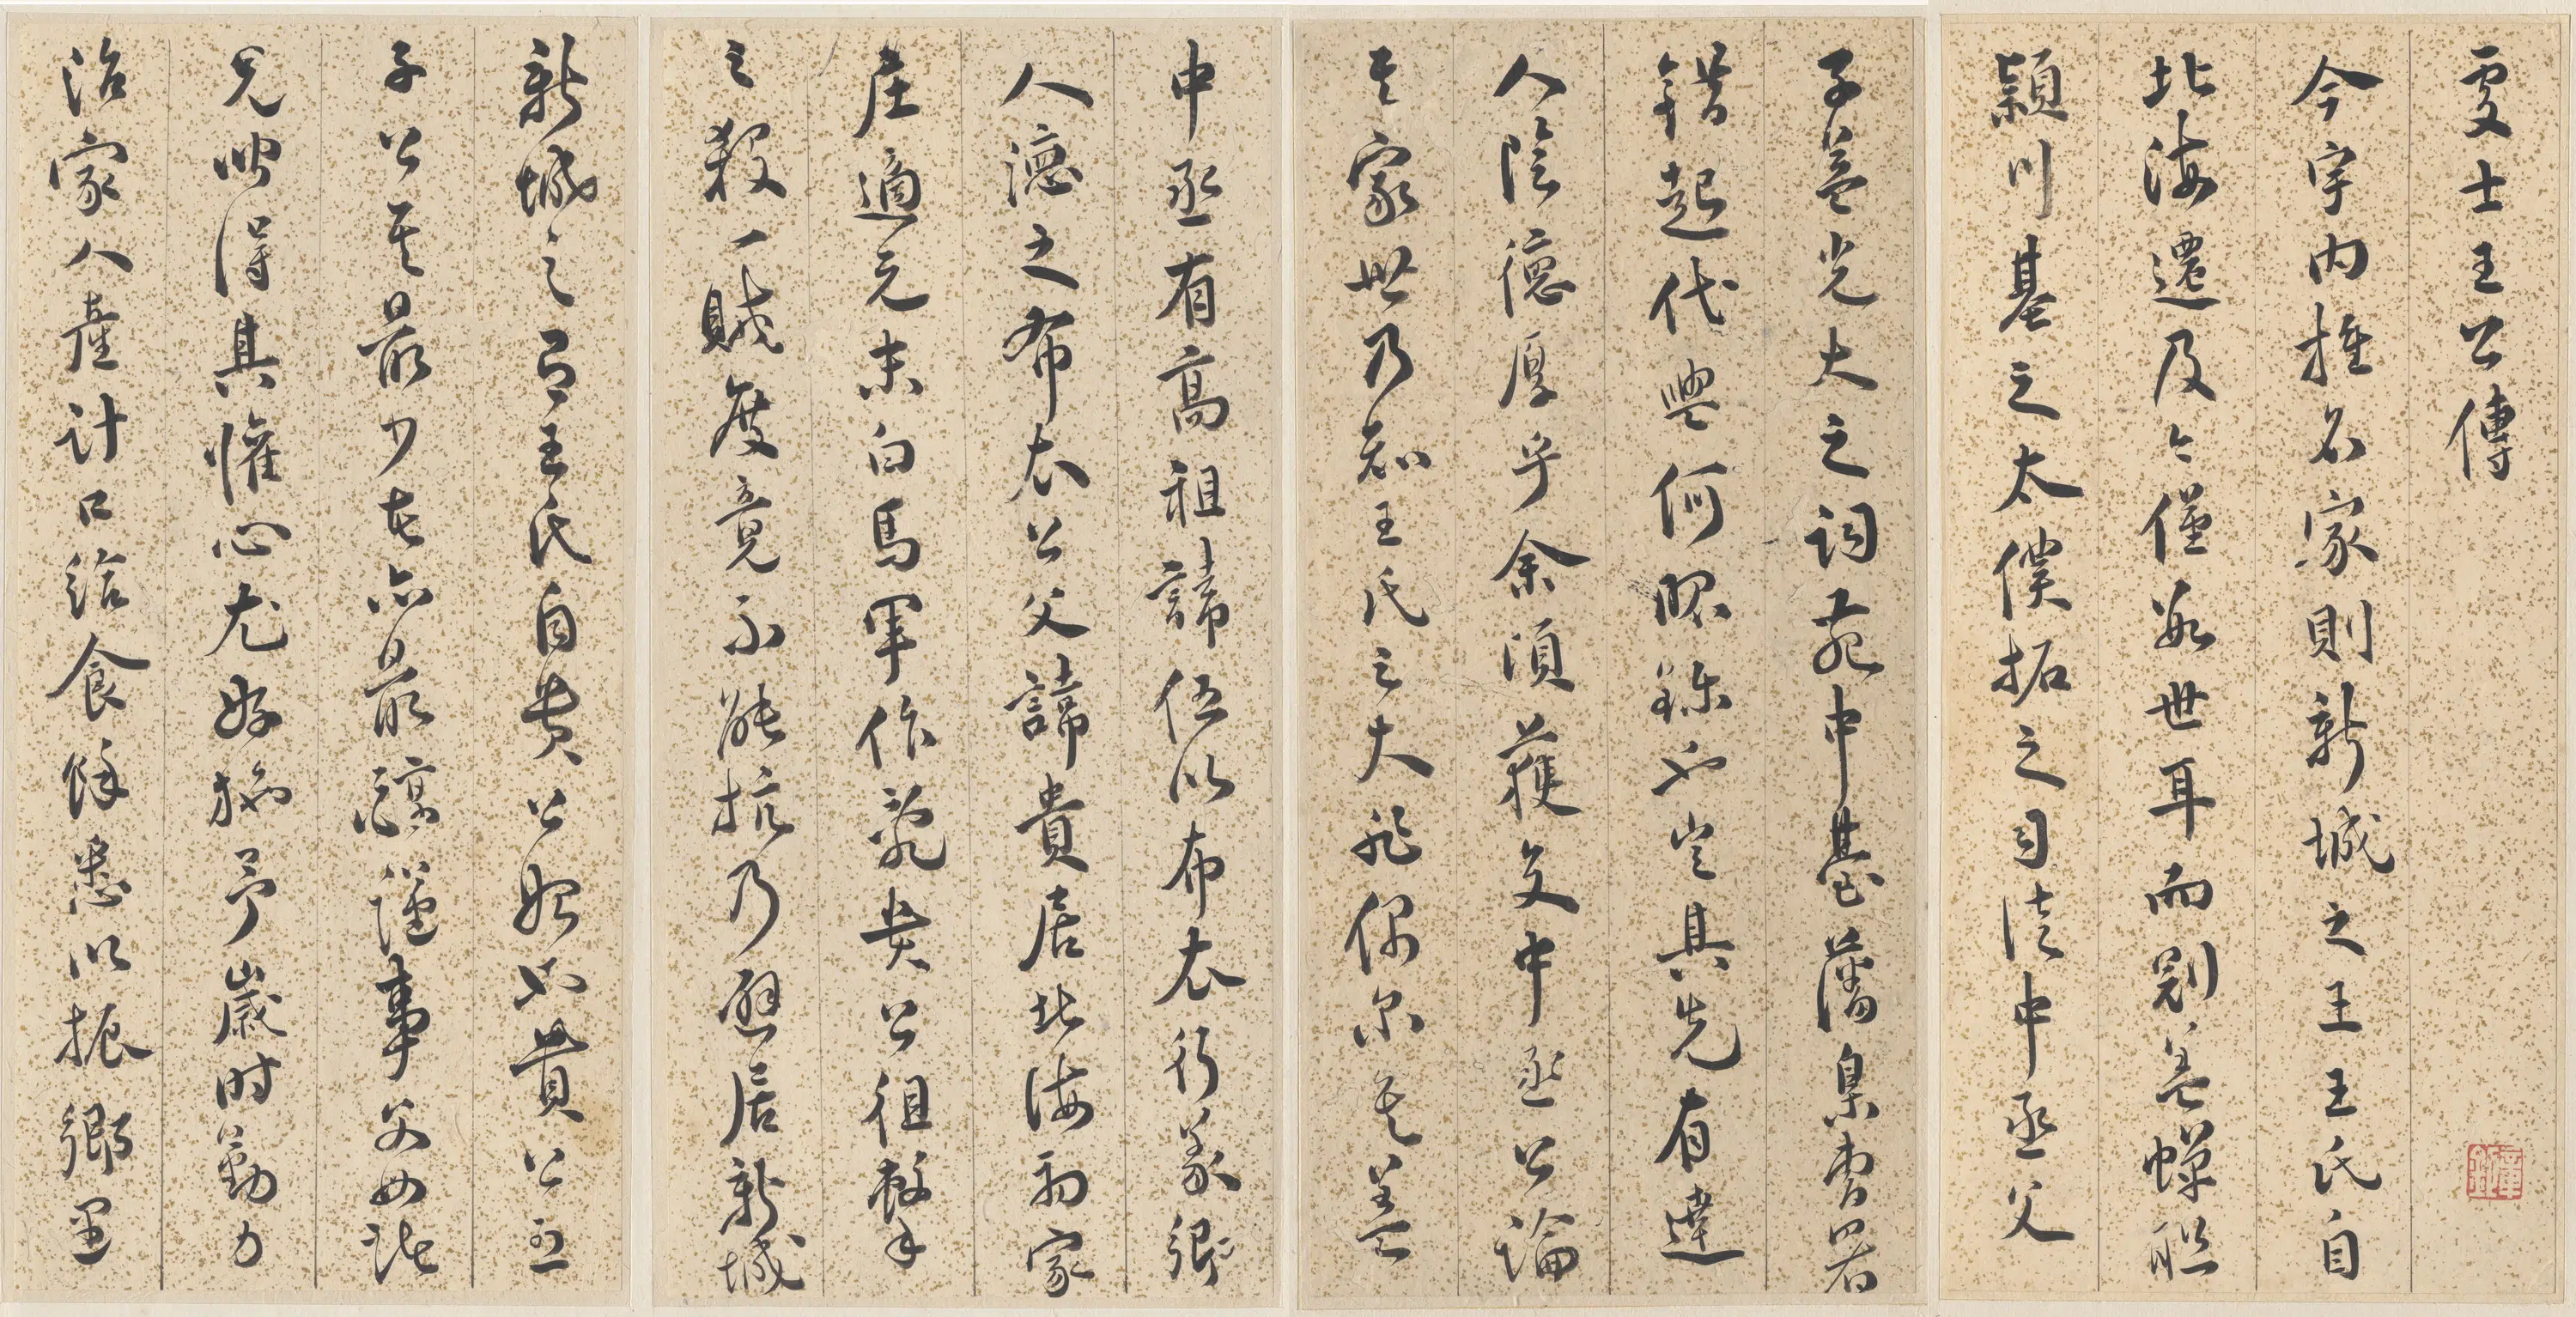 處士王公傳
今宇内推名家則新城之王王氏自
北海遷及今僅數世耳而剔蓋蟬聯
潁川基之太僕拓之司徒中丞父
子益光大之詞苑中臺藩臬曹署
錯起代興何昭爍也豈其先有達
人陰德厚乎余須獲交中丞公論
其家世乃知王氏之大非偶尔也蓋
中丞有高祖諱伍以布衣行義鄉
人德之布衣公父諱貴居北海初家
庄適元末白馬軍作亂貴公徂擊
之殺一賊度竟不能抗乃避居新城
新城之有王氏自貴公始也貴公五
子公其最少者亦最醇謹事父母諸
兄曲得其懽心尤好施予歲時勤力
治家人產計口給食餘悉以振鄉里